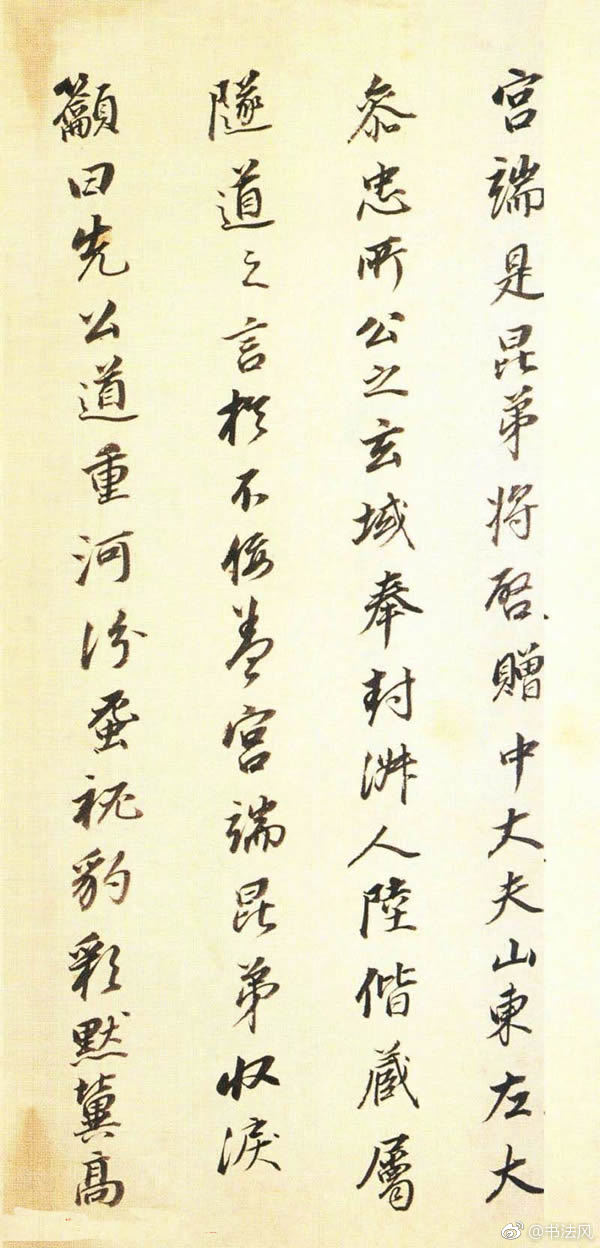 宮端是昆弟將啓贈中大夫山東左大
叅忠所公之玄域奉封淋人陸偕藏屬
隧道之言於不佞盖宮端昆弟收淚
籲曰先公道重河汾蚤祕豹彩默冀高
@书法风